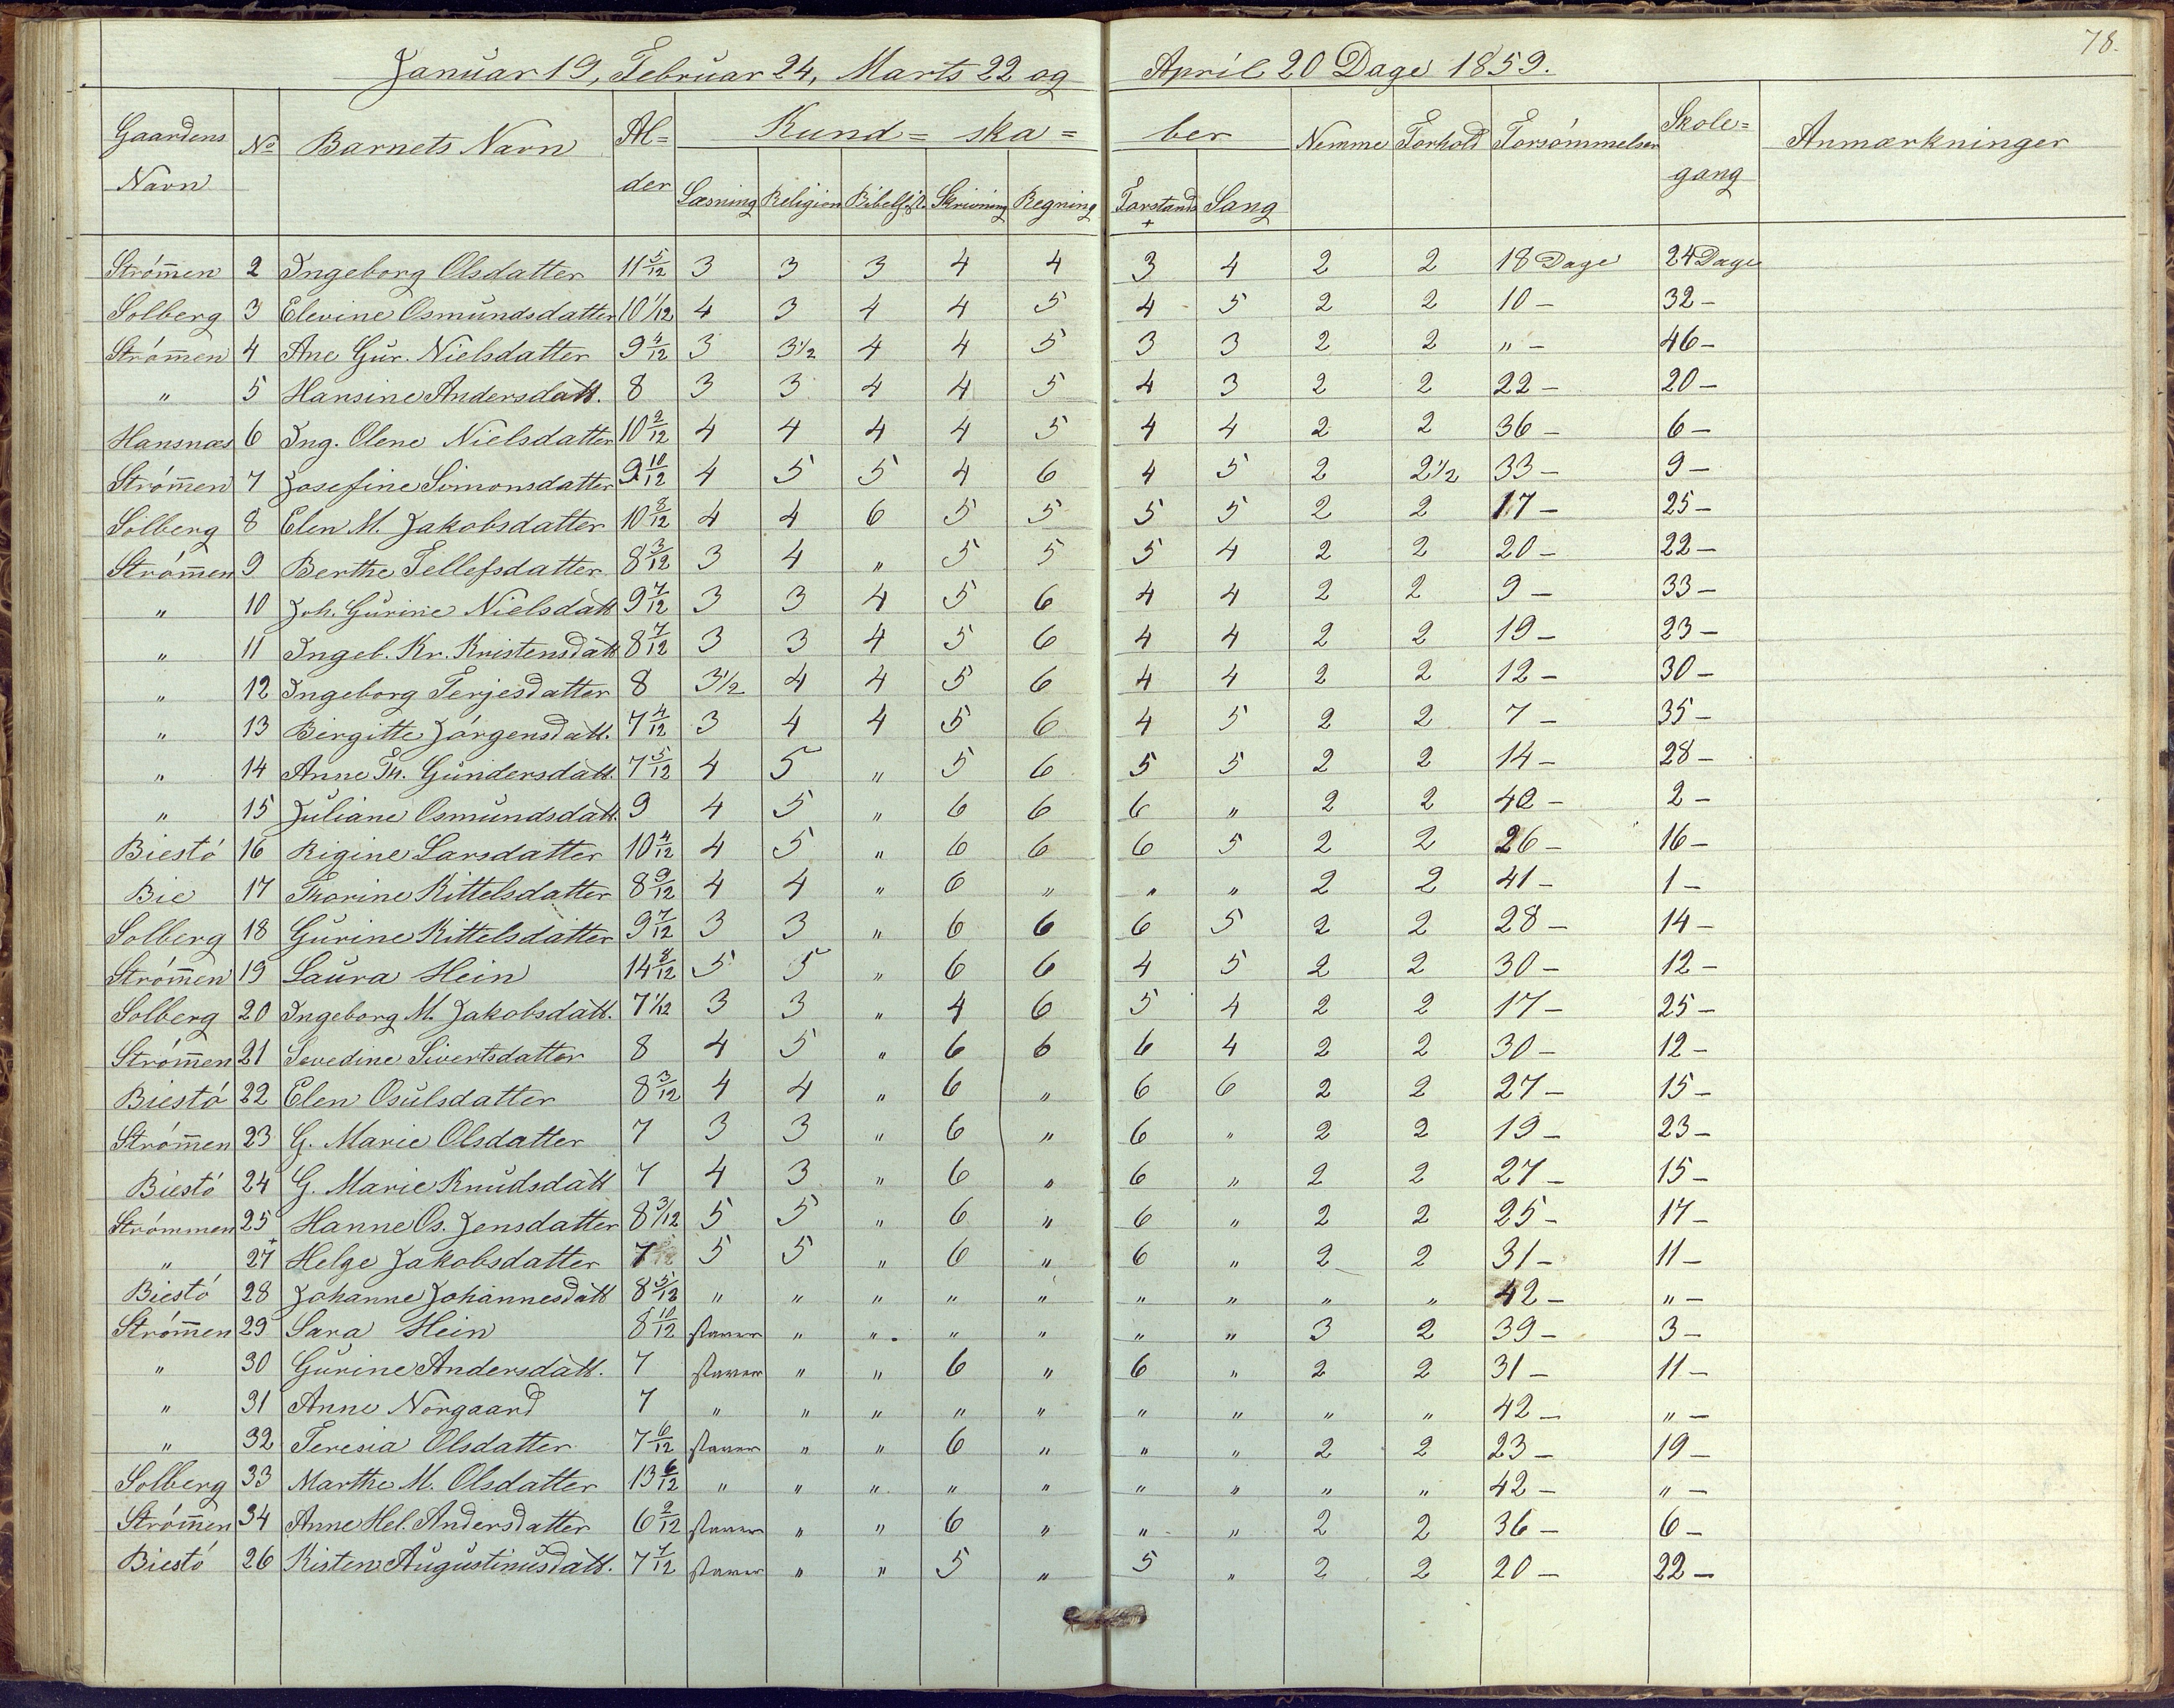 78.
Januar 19, Februar 24, Marts 22 og April 20 Dage 1859.
Gaardens Navn No Barnets Navn Al= der Kund= ska= ber Nemme Forhold Forsømmelser Skole= gang Anmærkninger
Læsning Religion Bibelhist. Skrivning Regning Forstands + Sang
Strømen 2 Ingeborg Olsdatter 11 5/12 3 3 3 4 4 3 4 2 2 18 Dage 24 Dage
Solberg 3 Elevine Osmundsdatter 10 1/12 4 3 4 4 5 4 5 2 2 10 – 32 –
Strømen 4 Ane Gur. Nielsdatter 9 4/12 3 3 1/2 4 4 5 3 3 2 2 " – 46 –
" 5 Hansine Andersdatt. 8 3 3 4 4 5 4 3 2 2 22 – 20 –
Hansnæs 6 Ing. Olene Nielsdatter 10 2/12 4 4 4 4 5 4 4 2 2 36 – 6 –
Strømen 7 Josefine Simonsdatter 9 10/12 4 5 5 4 6 4 5 2 2 1/2 33 – 9 –
Solberg 8 Elen M. Jakobsdatter 10 8/12 4 4 6 5 5 5 5 2 2 17 – 25 –
Strømen 9 Berthe Tellefsdatter 8 3/12 3 4 " 5 5 5 4 2 2 20 – 22 –
" 10 Joh. Gurine Nielsdatt 9 7/12 3 3 4 5 6 4 4 2 2 9 – 33 –
" 11 Ingeb. Kr. Kristensdatt 8 7/12 3 3 4 5 6 4 4 2 2 19 – 23 –
" 12 Ingeborg Terjesdatter 8 3 1/2 4 4 5 6 4 4 2 2 12 – 30 –
" 13 Birgitte Jørgensdatt. 7 4/12 3 4 4 5 6 4 5 2 2 7 – 35 –
" 14 Anne Th. Gundersdatt 7 5/12 4 5 " 5 6 5 5 2 2 14 – 28 –
" 15 Juliane Osmundsdatt. 9 4 5 " 6 6 6 " 2 2 40 – 2 –
Biestø 16 Rigine Larsdatter 10 4/12 4 5 " 6 6 6 5 2 2 26 – 16 –
Bie 17 Thorine Kittelsdatter 8 9/12 4 4 " 6 " " " 2 2 41 – 1 –
Solberg 18 Gurine Kittelsdatter 9 7/12 3 3 " 6 6 6 5 2 2 28 – 14 –
Strømen 19 Laura Hein 14 8/12 5 5 " 6 6 4 5 2 2 30 – 12 –
Solberg 20 Ingeborg M. Jakobsdatt. 7 1/12 3 3 " 4 6 5 4 2 2 17 – 25 –
Strømen 21 Sevedine Sivertsdatter 8 4 5 " 6 6 6 4 2 2 30 – 12 –
Biestø 22 Elen Osulsdatter 8 3/12 4 4 " 6 " 6 6 2 2 27 – 15 –
Strømen 23 G. Marie Olsdatter 7 3 3 " 6 " 6 " 2 2 19 – 23 –
Biestø 24 G. Marie Knudsdatt 7 4 3 " 6 " 6 " 2 2 27 – 15 –
Strømmen 25 Hanne Os. Jensdatter 8 3/12 5 5 " 6 " 6 " 2 2 25 – 17 –
" + 27 Helge Jakobsdatter 7 5 5 " 6 " 6 " 2 2 31 – 11 –
Biestø 28 Johanne Johannesdatt 8 5/12 " " " " " " " " " 42 – " –
Strømen 29 Sara Hein 8 10/12 staver " " " " " " 3 2 39 – 3 –
" 30 Gurine Andersdatt. 7 staver " " 6 " 6 " 2 2 31 – 11 –
" 31 Anne Norgaard 7 " " " " " " " " " 42 – " –
" 32 Teresia Olsdatter 7 6/12 staver " " 6 " " " 2 2 23 – 19 –
Solberg 33 Marthe M. Olsdatter 13 6/12 " " " " " " " " " 42 – " –
Strømen 34 Anne Hel. Andersdatter 6 2/12 staver " " 6 " " " 2 2 36 – 6 –
Biestø 26 Kisten Augustinusdatt. 7 7/12 staver " " 5 " 5 " 2 2 20 – 22 –